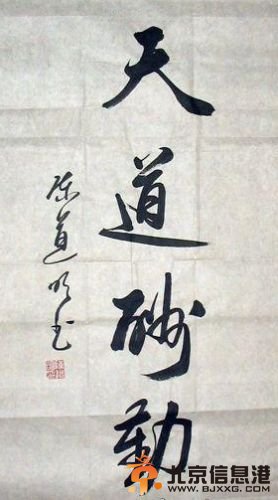 天道酬勤
陈道明书
北京信息港
WWW.BJXXG.COM